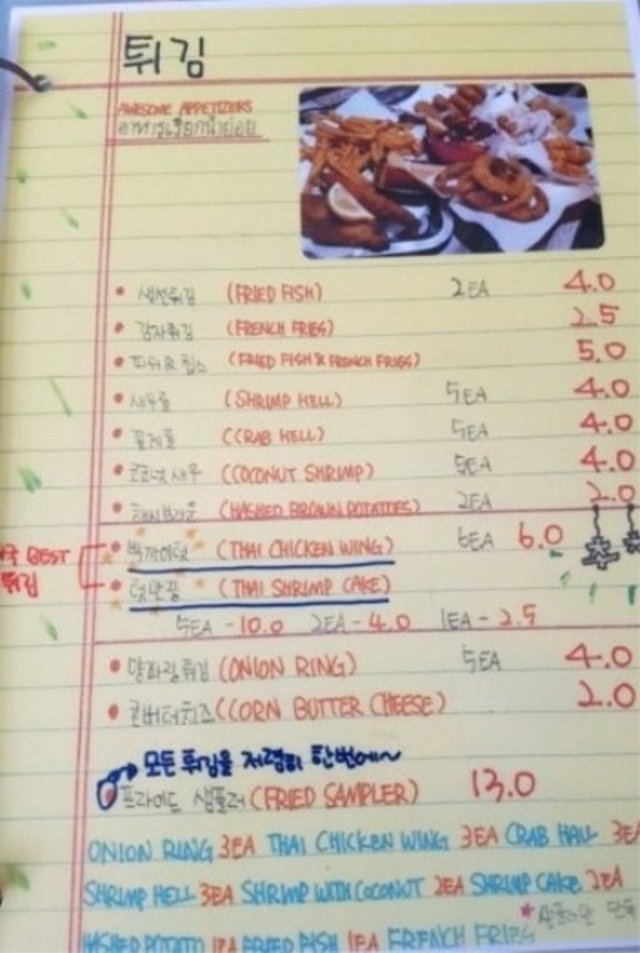 튀김
AWESOME APPETIZERS
อาหารเรียกน้ำย่อย
• 생선튀김 (FRIED FISH) 2EA 4.0
• 감자튀김 (FRENCH FRIES) 2.5
• 피쉬&칩스 (FRIED FISH & FRENCH FRIES) 5.0
• 새우롤 (SHRIMP HELL) 5EA 4.0
• 꽃게롤 (CRAB HELL) 5EA 4.0
• 코코넛새우 (COCONUT SHRIMP) 5EA 4.0
• 해쉬브라운 (HASHED BROWN POTATOES) 2EA 2.0
BEST 튀김
• (THAI CHICKEN WING) 6EA 6.0
• 텃만꿍 (THAI SHRIMP CAKE)
5EA - 10.0 2EA - 4.0 1EA - 2.5
• 양파링튀김 (ONION RING) 5EA 4.0
• 콘버터치즈 (CORN BUTTER CHEESE) 2.0
모든 튀김을 저렴히 한번에~
프라이드 샘플러 (FRIED SAMPLER) 13.0
ONION RING 3EA THAI CHICKEN WING 3EA CRAB HALL 3EA
SHRIMP HELL 3EA SHRIMP WITH COCONUT 2EA SHRIMP CAKE 2EA
HASHED POTATO 1EA FRIED FISH 1EA FRENCH FRIES